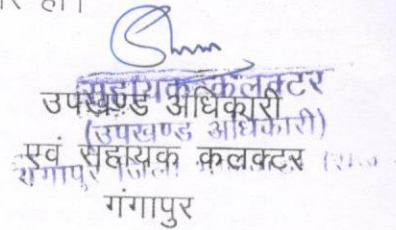 हो।
सहायक कलक्टर
उपखण्ड अधिकारी
(उपखण्ड अधिकारी)
एवं सहायक कलक्टर
गंगापुर जिला
गंगापुर